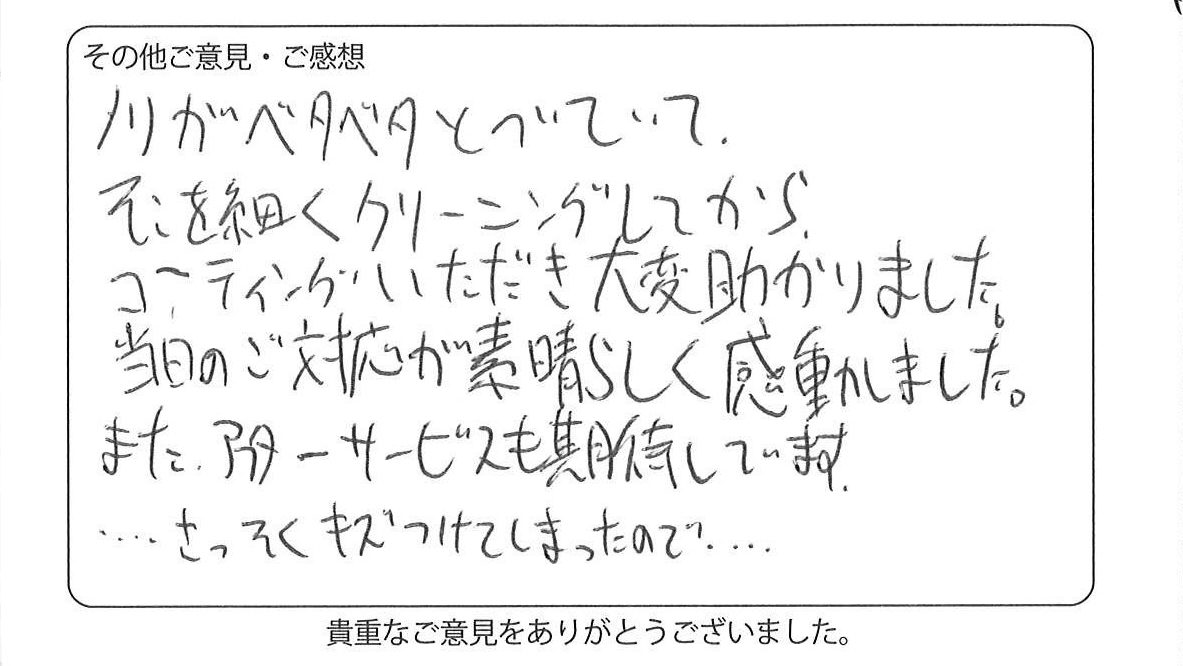 その他ご意見・ご感想
ノリがベタベタとついていて、
そこを細くクリーニングしてから、
コーティングいただき大変助かりました。
当日のご対応が素晴らしく感動しました。
また、アフターサービスも期待しています。
‥‥さっそくキズつけてしまったので‥‥
貴重なご意見をありがとうございました。